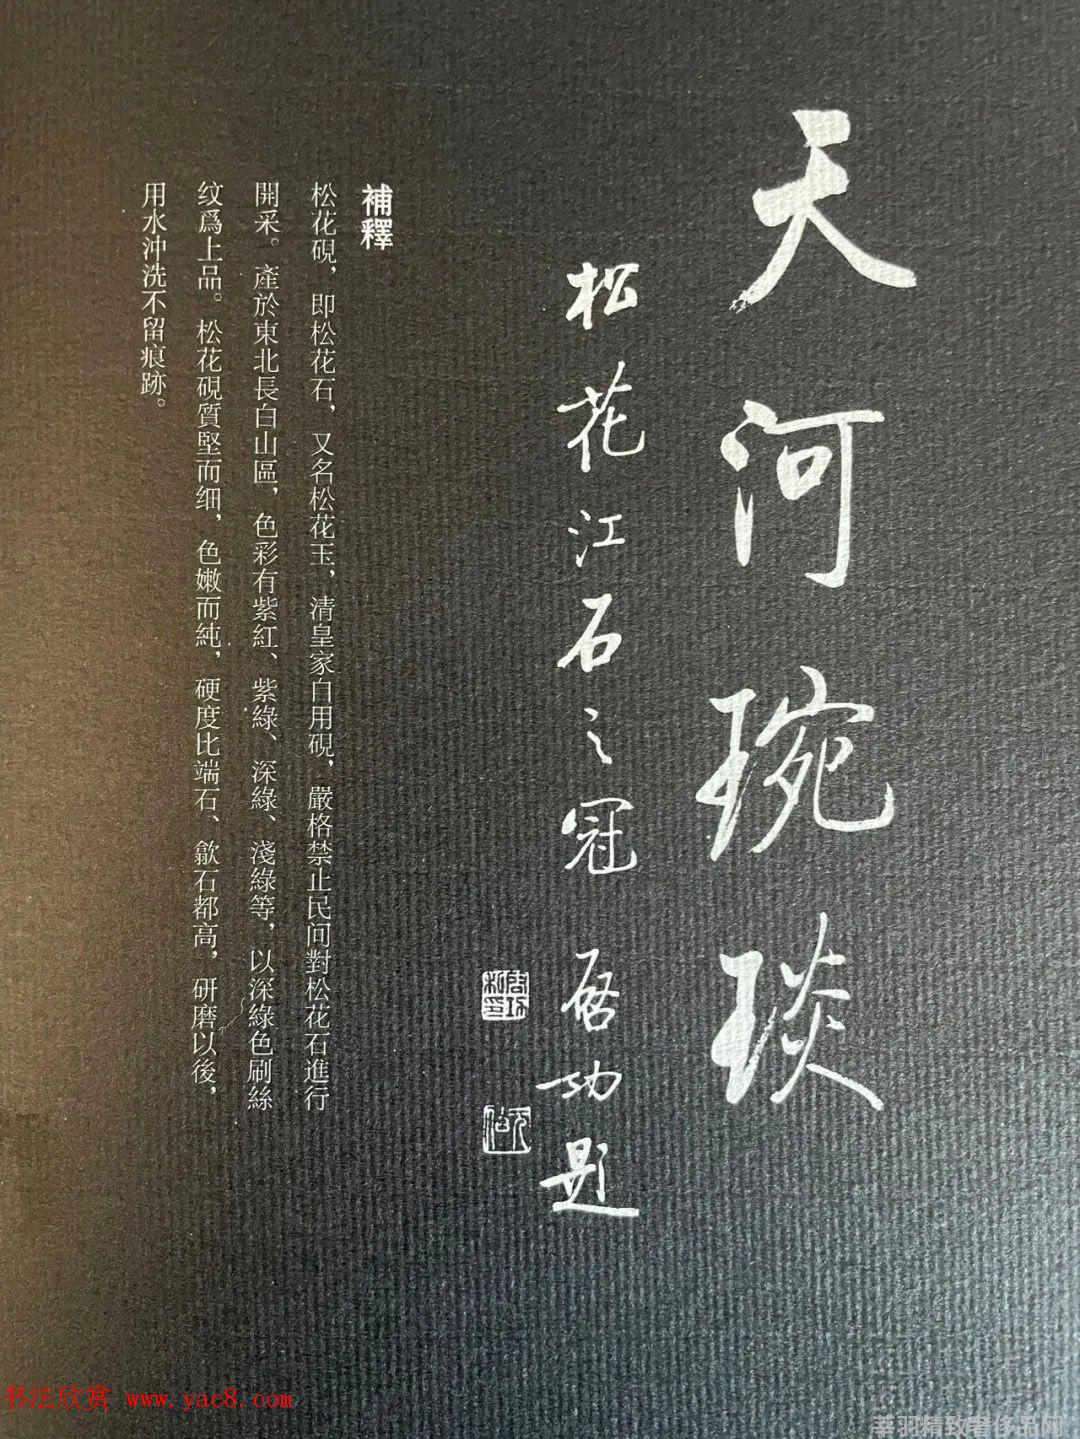 天河琬琰
松花江石之冠 啓功題
補釋
松花硯，即松花石，又名松花玉，清皇家自用硯，嚴格禁止民间對松花石進行
開采。產於東北長白山區，色彩有紫紅、紫綠、深綠、淺綠等，以深綠色刷絲
纹爲上品。松花硯質堅而细，色嫩而純，硬度比端石、歙石都高，研磨以後，
用水沖洗不留痕跡。
书法欣赏 www.yac8.com
莘羽精致奢侈品网